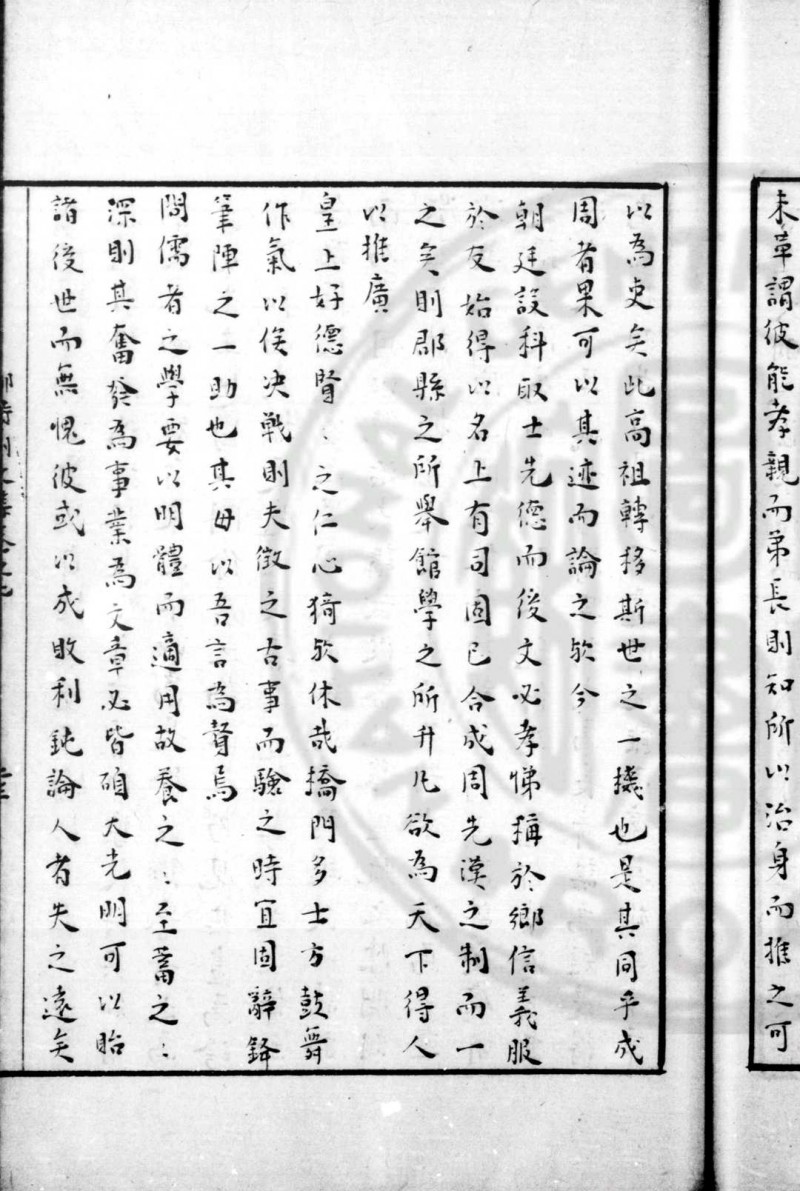 未章謂彼能孝親而弟長則知所以治身而推之可
以為吏矣此高祖轉移斯世之一機也是其同乎成
周者果可以其迹而論之欤今
朝廷設科取士先德而後文必孝悌稱於鄉信義服
於友始得以名上有司固已合成周先漢之制而一
之矣則郡縣之所舉館學之所升凡欲為天下得人
以推廣
皇上好德賢〻之仁心猗欤休哉橋門多士方鼓舞
作氣以俟决戰則夫徵之古事而驗之時宜固辭鋒
筆陣之一助也其毋以吾言為瞽焉
問儒者之學要以明體而適用故養之〻至蓄之〻
深則其奮發為事業為文章必皆碩大光明可以貽
諸後世而無愧彼或以成敗利鈍論人者失之遠矣